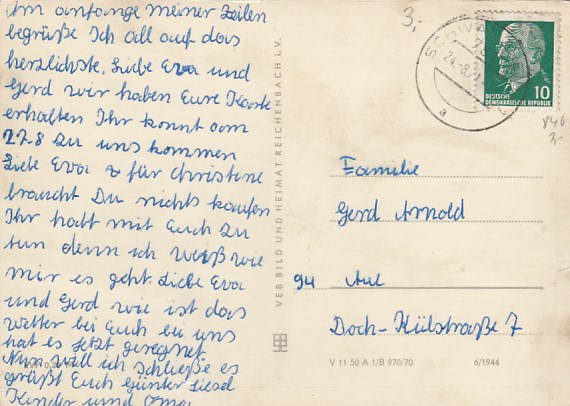 Am anfange meiner Zeilen
begrüße Ich all auf das
herzlichste. Liebe Eva und
Gerd wir haben Eure Karte
erhalten Ihr könnt am
27.8 zu uns kommen
Liebe Eva für christene
brauchst Du nichts kaufen
Ihr habt mit Euch zu
tun denn ich weiß wie
mir es geht. Liebe Eva
und Gerd wie ist das
wetter bei Euch bei uns
hat es jetzt geregnet.
Nun will ich schließe es
grüßt Euch Günter Liesel
Kinder und Oma
VEB BILD UND HEIMAT REICHENBACH I. V.
3,-
24.-8.71
a
DEUTSCHE
DEMOKRATISCHE REPUBLIK
10
846
3,-
Familie
Gerd Arnold
94 Aue
Doch-Külstraße 7
V 11 50 A 1/B 970/70
6/1944